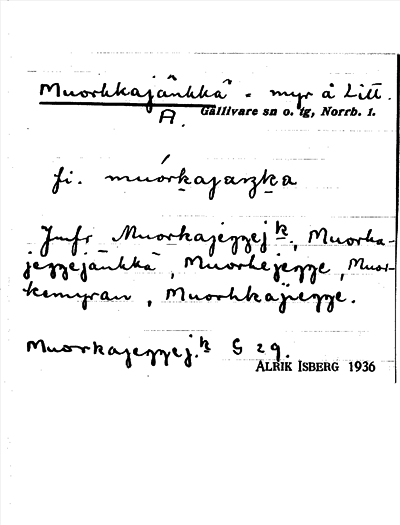 Muorhkajänkkä - myr å Litt.
A. Gällivare sn o. tg, Norrb. l.
fi. muórkajaŋka
Jmfr Muorkajeggej k., Muorka-
jeggejänkkä, Muorkejegge, Muor-
kemyran, Muorhkajiegge.
Muorkajeggej. k G 29.
ALRIK ISBERG 1936